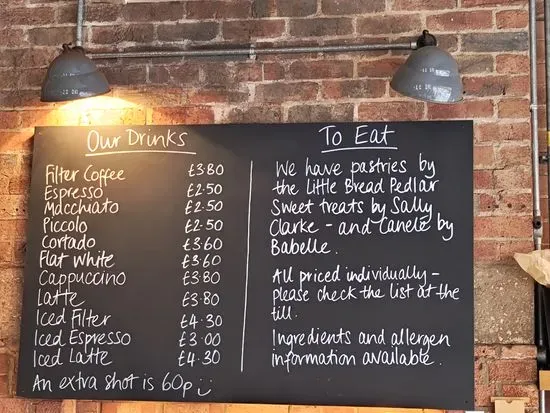 Our Drinks
Filter Coffee £3.80
Espresso £2.50
Macchiato £2.50
Piccolo £2.50
Cortado £3.60
Flat White £3.60
Cappuccino £3.80
Latte £3.80
Iced Filter £4.30
Iced Espresso £3.00
Iced Latte £4.30
An extra shot is 60p
To Eat
We have pastries by
the Little Bread Pedlar
Sweet treats by Sally
Clarke - and Canelé by
Babelle.
All priced individually -
please check the list at the
till.
Ingredients and allergen
information available.